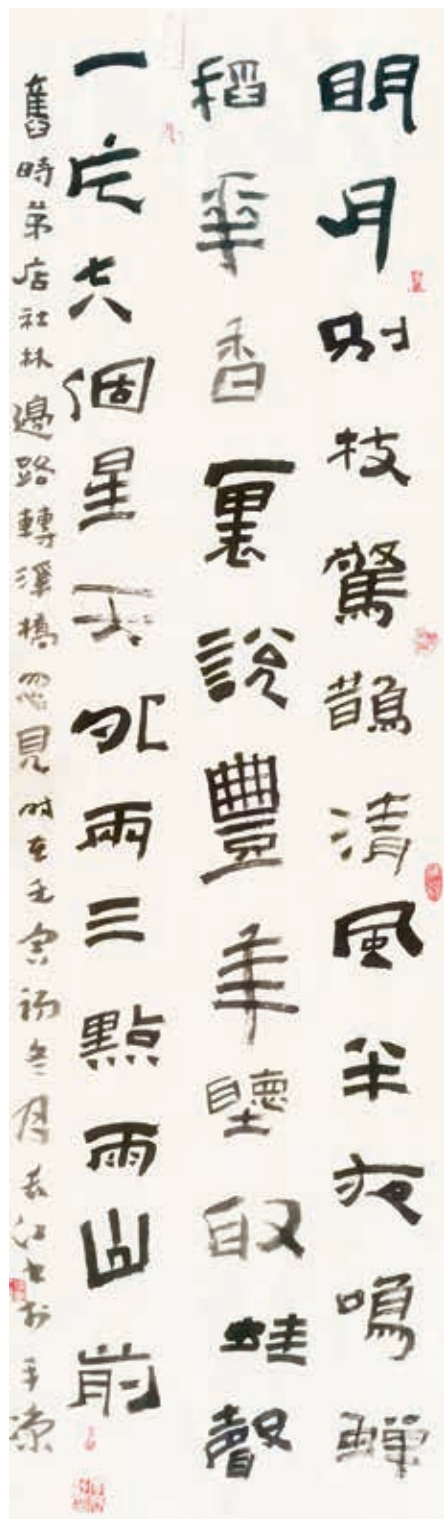 明月別枝驚鵲清風半夜鳴蟬
稻華香裏說豐年聽取蛙聲
一片七八個星天外兩三點雨山前
舊時茅店社林邊路轉溪橋忽見時在壬寅初冬月江書於平涼